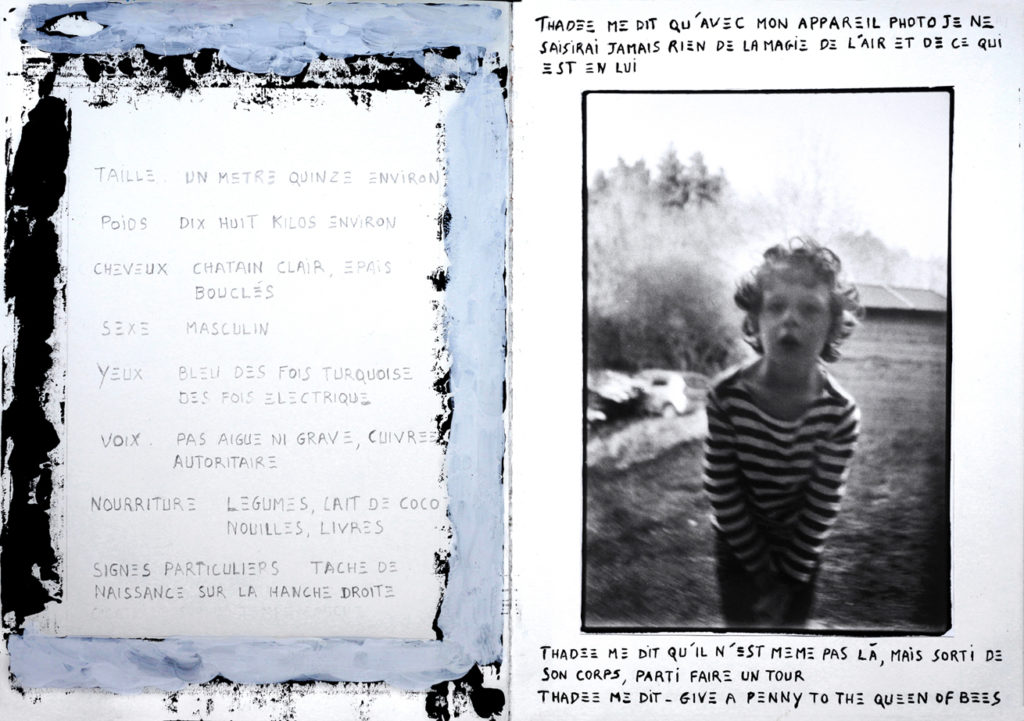 TAILLE. UN METRE QUINZE ENVIRON
POIDS DIX HUIT KILOS ENVIRON
CHEVEUX CHATAIN CLAIR, EPAIS
BOUCLÉS
SEXE MASCULIN
YEUX BLEU DES FOIS TURQUOISE
DES FOIS ELECTRIQUE
VOIX. PAS AIGUE NI GRAVE, CUIVREE
AUTORITAIRE
NOURRITURE LEGUMES, LAIT DE COCO
NOUILLES, LIVRES
SIGNES PARTICULIERS TACHE DE
NAISSANCE SUR LA HANCHE DROITE
THADEE ME DIT QU'AVEC MON APPAREIL PHOTO JE NE
SAISIRAI JAMAIS RIEN DE LA MAGIE DE L'AIR ET DE CE QUI
EST EN LUI
THADEE ME DIT QU'IL N'EST MEME PAS LÀ, MAIS SORTI DE
SON CORPS, PARTI FAIRE UN TOUR
THADEE ME DIT - GIVE A PENNY TO THE QUEEN OF BEES